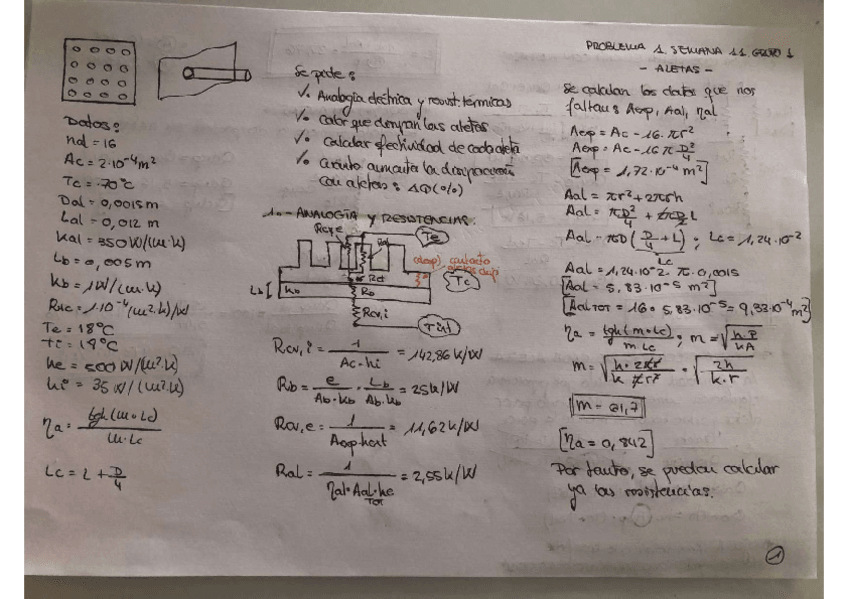 PROBLEMA 1. SEMANA 11 GRUPO 1
- ALETAS -
Datos:
nal = 16
Ac = 2·10⁻⁴ m²
Tc = 70°C
Dal = 0,0015 m
Lal = 0,012 m
Kal = 350 W/(m·k)
Lb = 0,005 m
Kb = 1 W/(m·k)
= 1·10⁻⁴ (m²·k)/W
Te = 18°C
he = 500 W/(m²·k)
hi = 35 W/(m²·k)
ηa = tgh(m·Lc) / m·Lc
Lc = L + D/4
Se pide:
√. Analogía eléctrica y resist. térmicas
√. Calor que disipan las aletas
√. Calcular efectividad de cada aleta
√. Cuánto aumenta la disipación
con aletas: ΔQ(%)
1.- ANALOGÍA y RESISTENCIAS.
Rcv,e
Te
Tc
Lb
Kb
Rb
Rcv,i
Rcv,i = 1 / Ac·hi = 142,86 k/W
Rb = e / Ab·kb · Lb / Ab·kb = 25 k/W
Rcv,e = 1 / = 11,62 k/W
Ral = 1 / ηal·Aal·he = 2,55 k/W
TOT
Se calculan los datos que nos
faltan: Aexp, Aal, ηal
Aexp = Ac - 16·πr²
Aexp = Ac - 16π D²/4
[Aexp = 1,72·10⁻⁴ m²]
Aal = πr² + 2πrh
Aal = πD²/4 + 2πD/2 L
Aal = πD (D/4 + L) ; Lc = 1,24·10⁻²
Lc
Aal = 1,24·10⁻²·π·0,0015
[Aal = 5,83·10⁻⁵ m²]
[Aal TOT = 16·5,83·10⁻⁵ = 9,33·10⁻⁴ m²]
ηa = tgh(m·Lc) / m Lc ; m = √(h·P / kA)
m = √(h·2πr / k πr²) = √(2h / k·r)
[ηa = 0,842]
Por tanto, se pueden calcular
ya las resistencias.
1